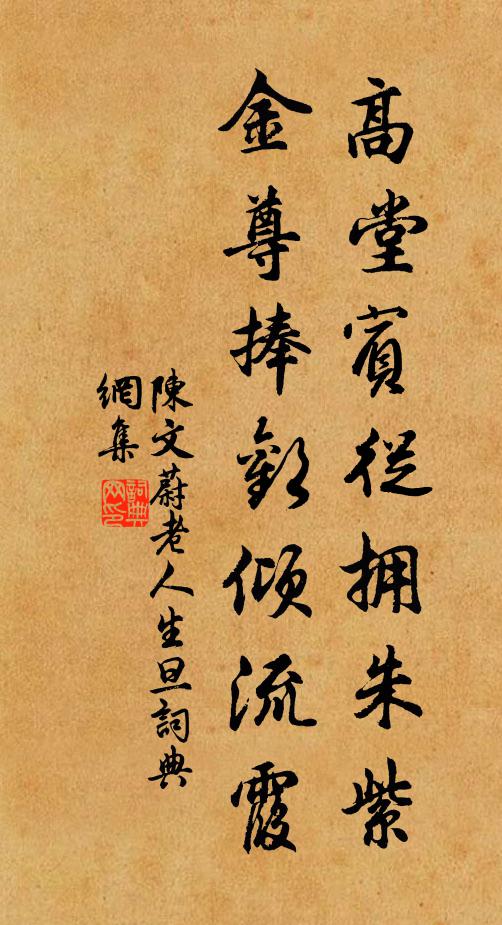 高堂賓從拥朱紫
金尊捧劝傾流霞
陳文蔚老人生旦詞典
網集
詞典
网印